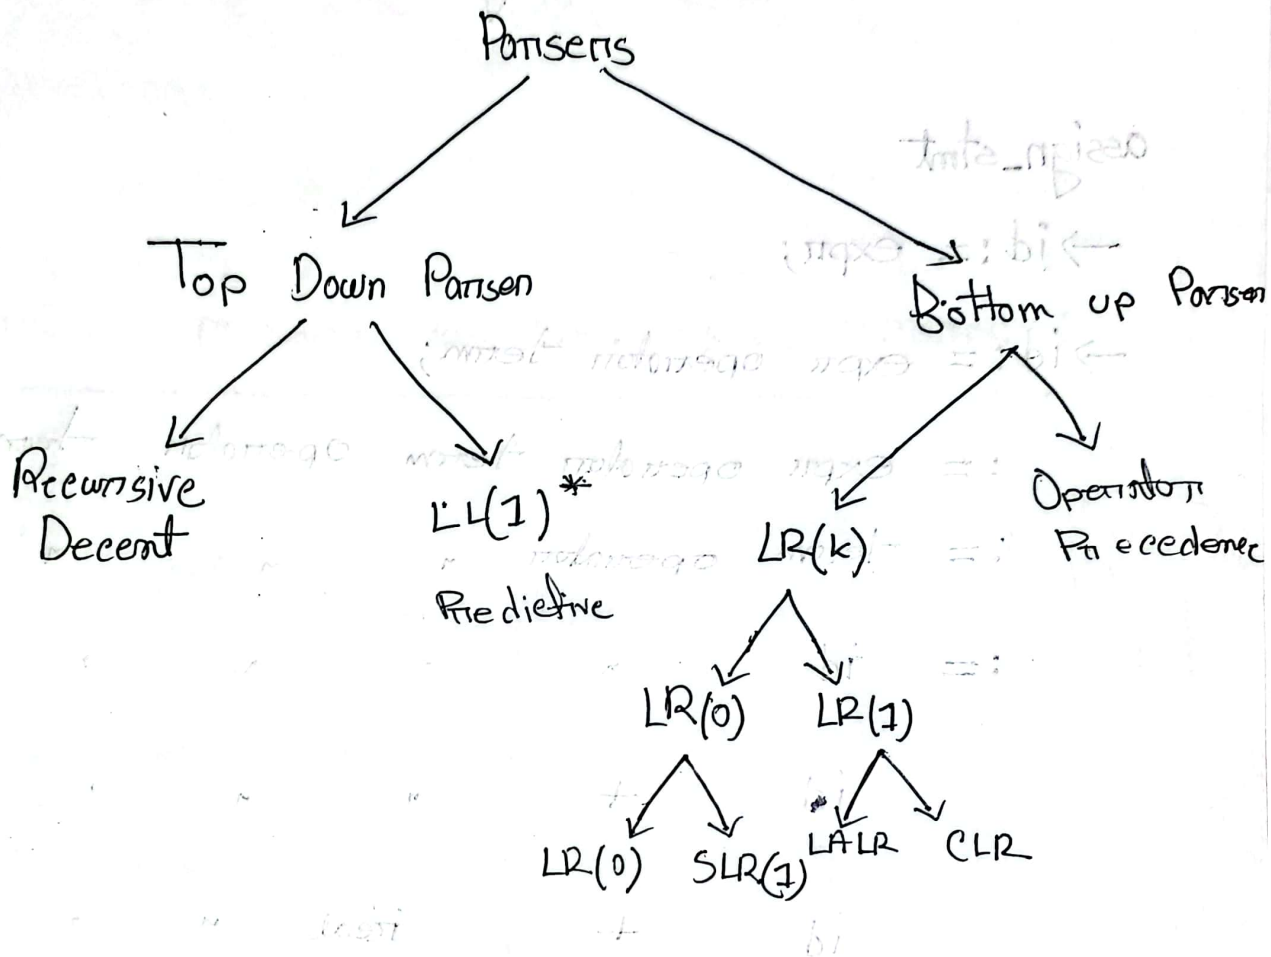 Parsers
Top Down Parser
Bottom up Parser
Recursive
Decent
LL(1)*
Predictive
LR(k)
Operator
Precedence
LR(0)
LR(1)
LR(0)
SLR(1)
LALR
CLR